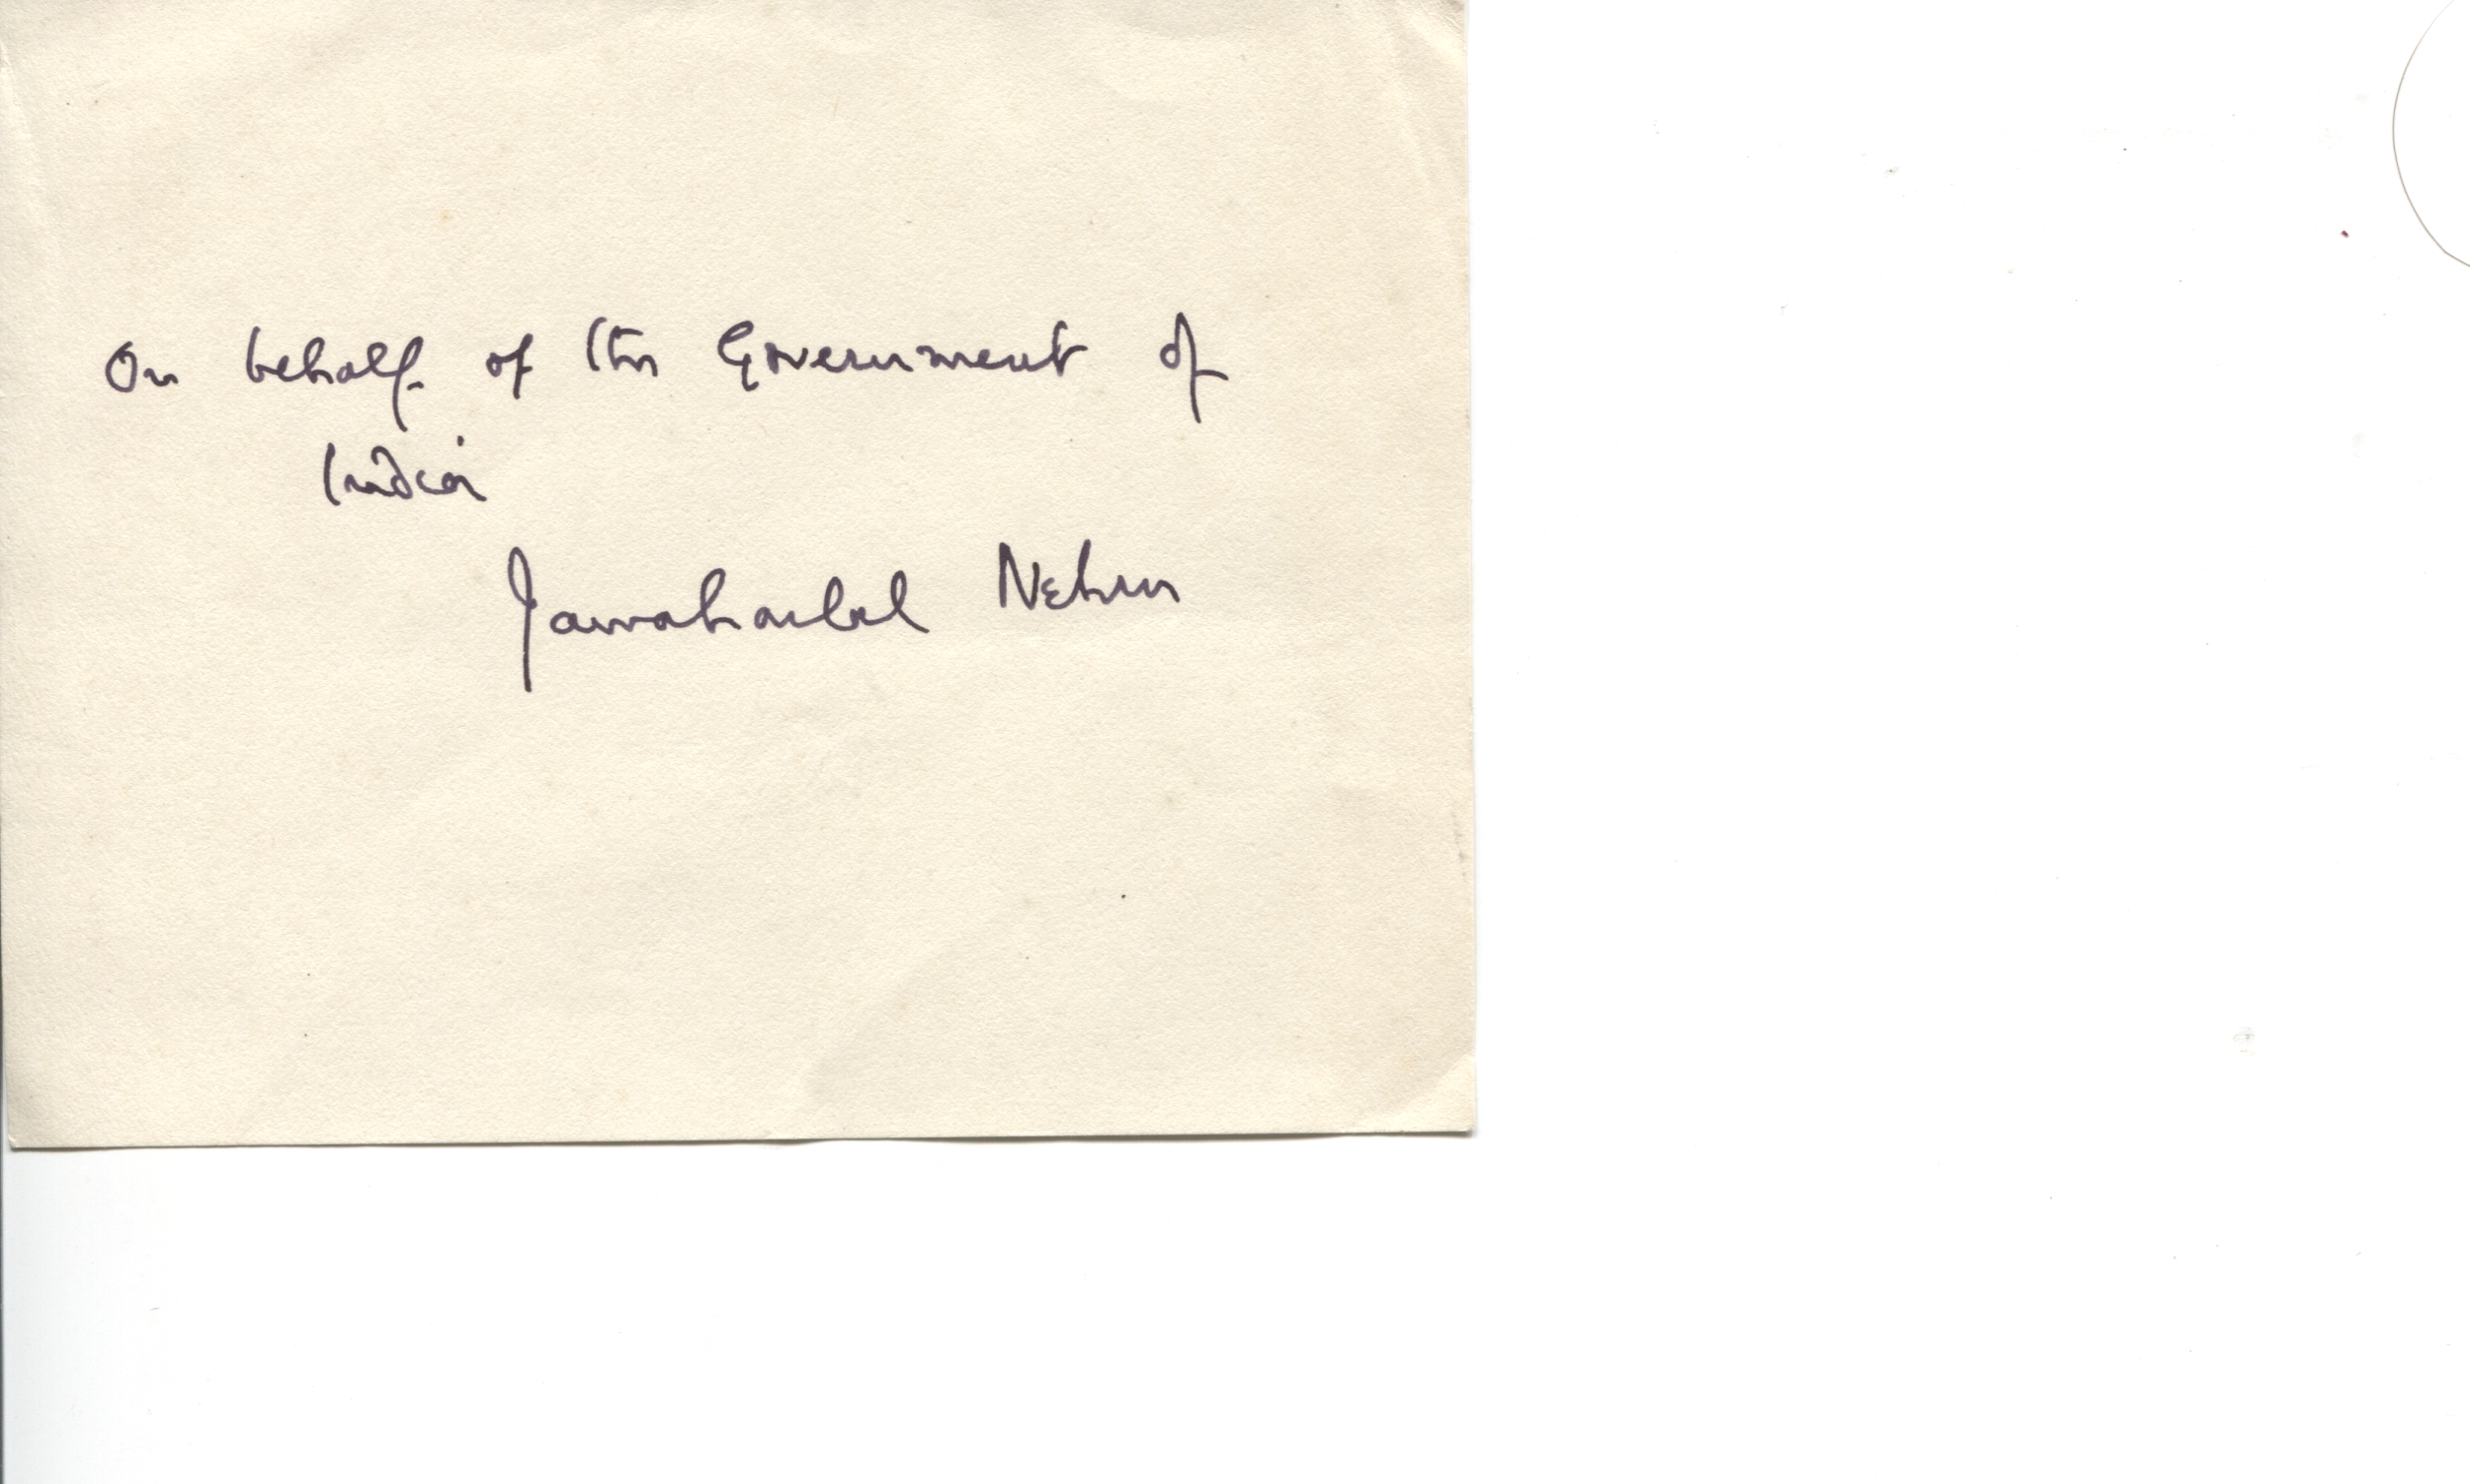 On behalf of the Government of
India
Jawaharlal Nehru